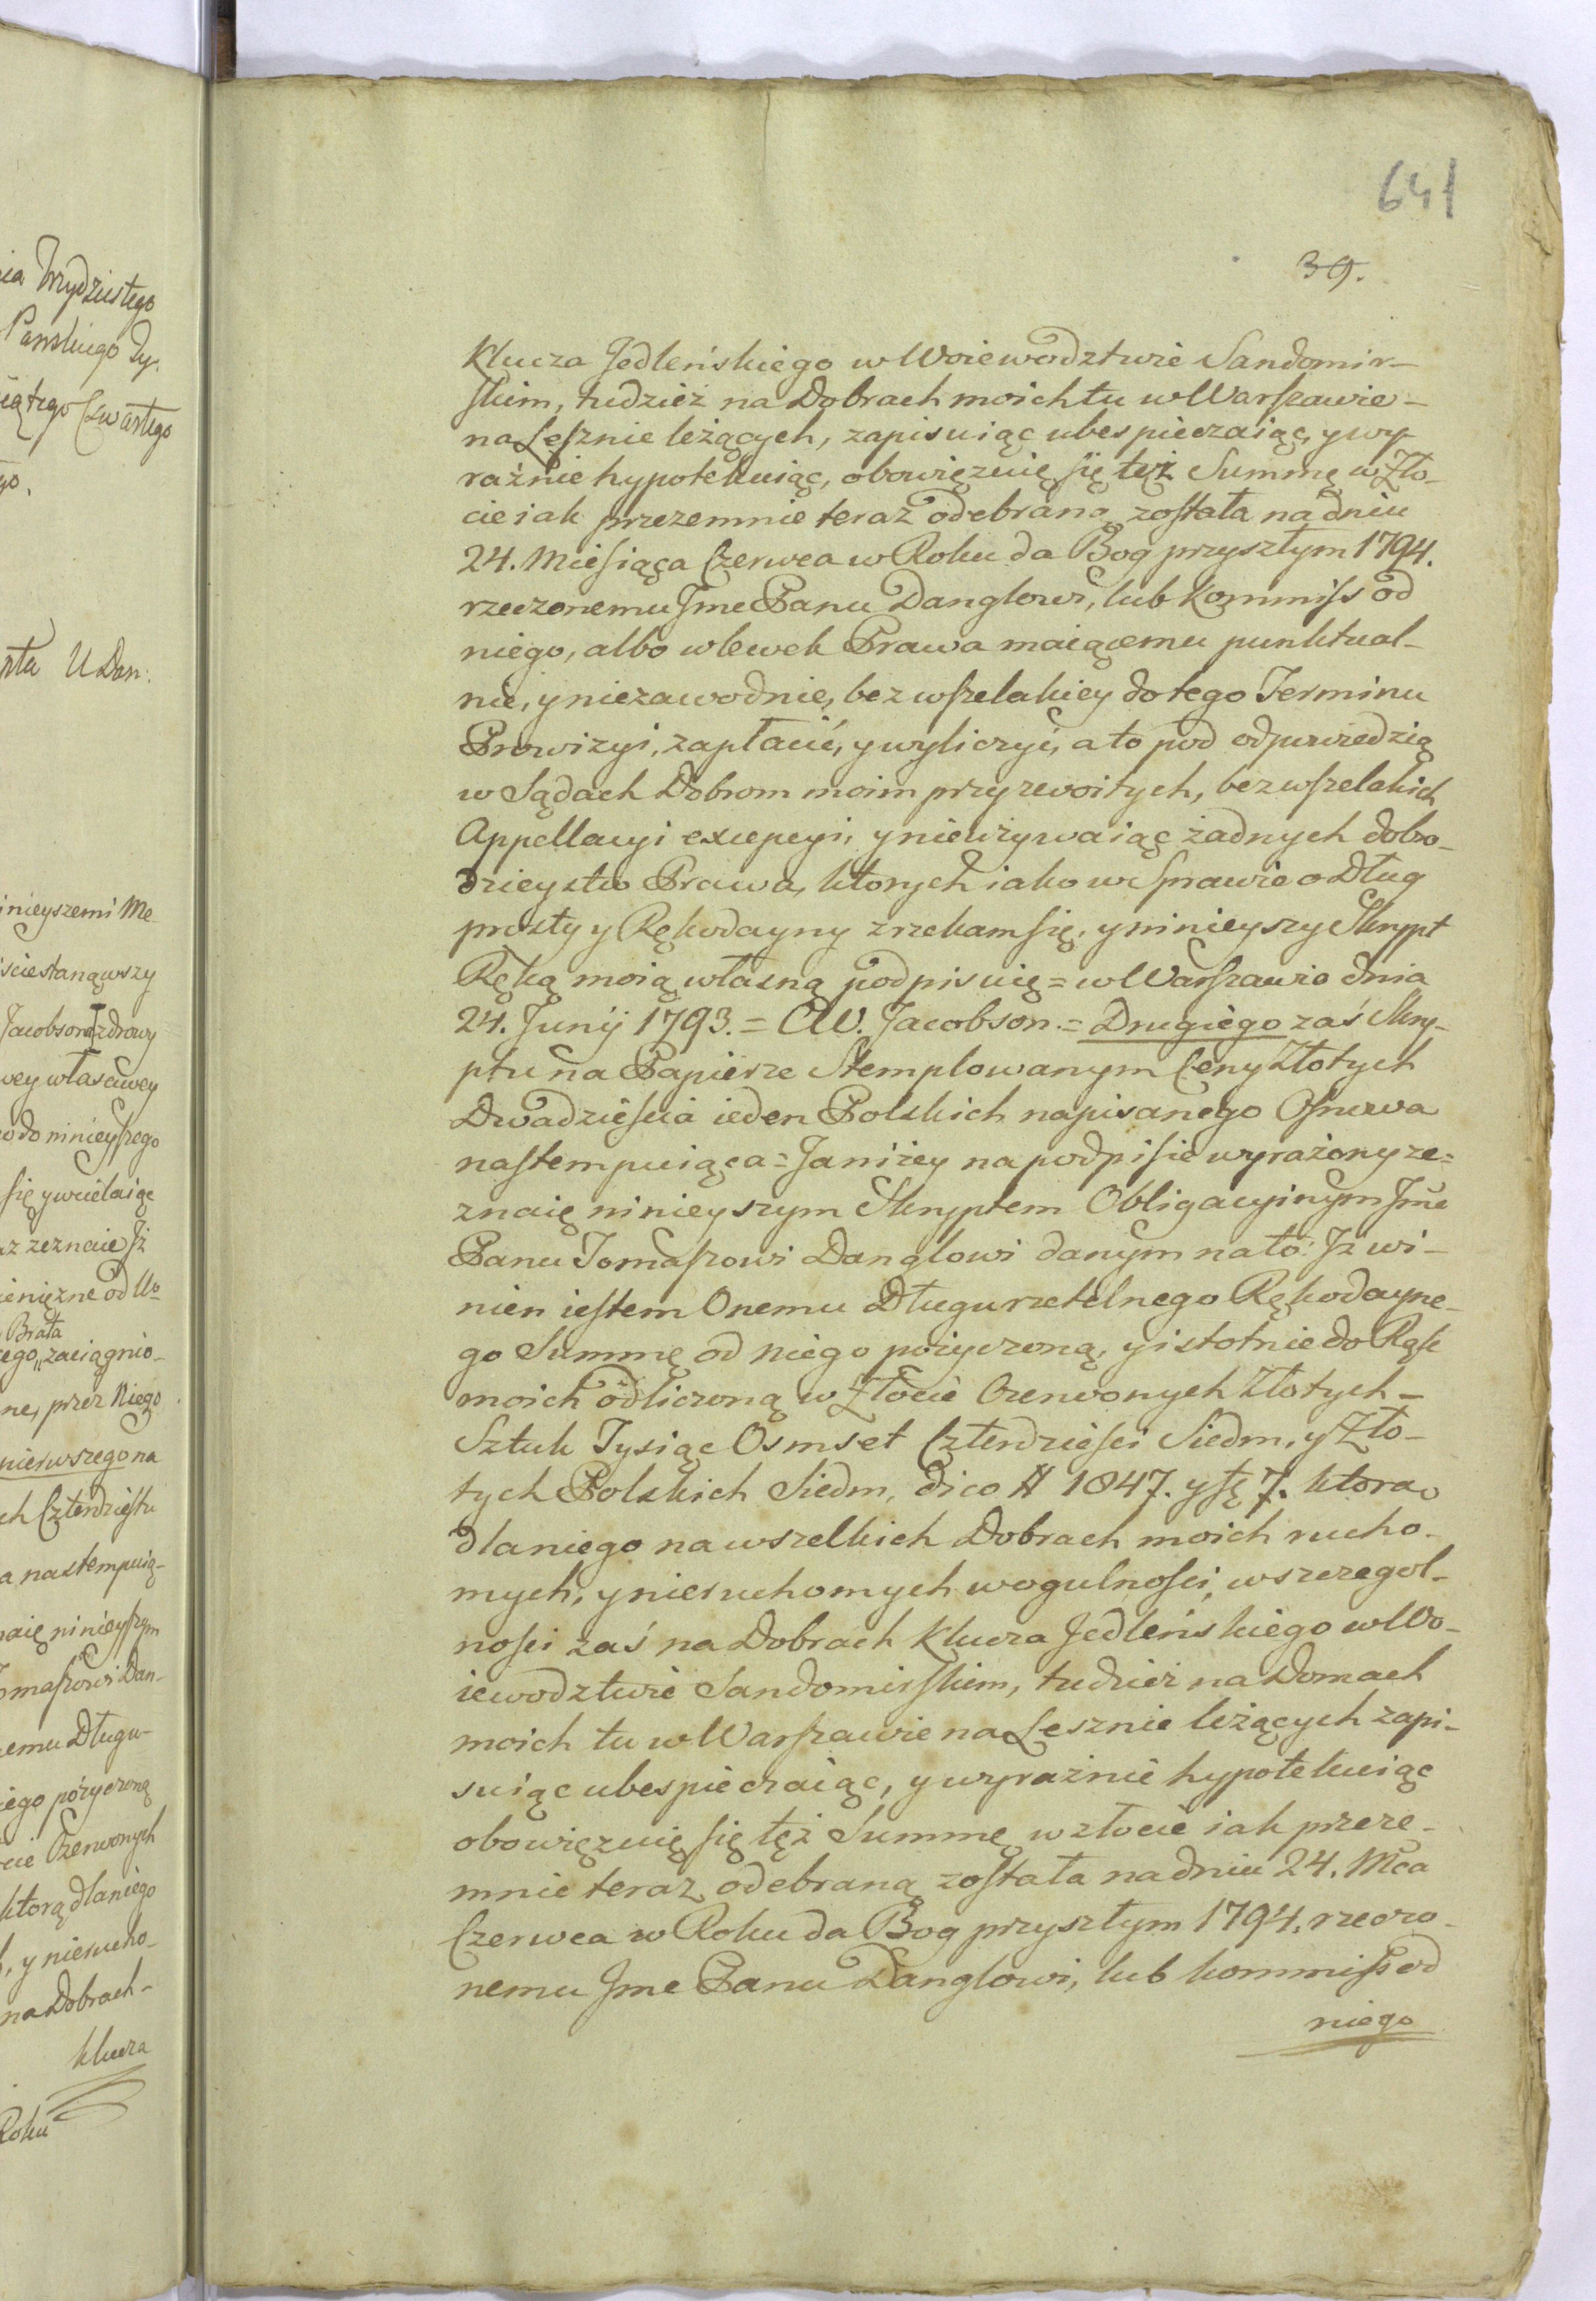 641
39.
Klucza Jedleńskiego w Woiewodztwie Sandomir-
skim, tudzież na Dobrach moich tu w Warszawie-
na Lesznie leżących, zapisuiąc ubespieczaiąc, y wy-
raźnie hypotekuiąc, obowięzuię się też Summę w Zło-
cie iak przezemnie teraz odebraną została na dniu
24. Miesiąca Czerwca w Roku da Bog przyszłym 1794.
rzeczonemu Jme Panu Danglowi, lub Kommiss od
niego, albo wlewek Prawa maiącemu punktual-
nie, y niezawodnie, bez wszelakiey do tego Terminu
Prowizyi, zapłacić, y wyliczyć, a to pod odpowiedzią
w Sądach Dobrom moim przyzwoitych, bez wszelakich
Appellacyi excepcyi, y nieużywaiąc żadnych dobro-
dzieystw Prawa, ktorych iako w Sprawie o Dług
prosty y Rękodayny zrzekam się, y ninieyszy Skrypt
Ręką moią własną podpisuię = w Warszawie dnia
24. Junij 1793. = CW. Jacobson. = Drugiego zaś Skry-
ptu na Papierze Stemplowanym Ceny Złotych
Dwadzieścia ieden Polskich napisanego Osnowa
nastempuiąca = Ja niżey na podpisie wyrażony ze=
znaię ninieyszym Skryptem Obligacyinym Jme
Panu Tomaszowi Danglowi danym na to: Jż wi-
nien iestem Onemu Długu rzetelnego Rękodayne-
go Summę od niego pożyczoną, y istotnie do Rąk
moich odliczoną w Złocie Czerwonych Złotych-
Sztuk Tysiąc Osmset Czterdzieści Siedm, y Zło-
tych Polskich Siedm, dico # 1847. y fł 7. ktorą
dla niego na wszelkich Dobrach moich rucho-
mych, y nieruchomych wogulności, w szczegol-
ności zaś na Dobrach Klucza Jedleńskiego w Wo-
iewodztwie Sandomirskim, tudzież na Domach
moich tu w Warszawie na Lesznie leżących zapi-
suiąc ubespieczaiąc, y wyraźnie hypotekuiąc
obowięzuię się też Summę w złocie iak przeze-
mnie teraz odebraną została na dniu 24. Mca
Czerwca w Roku da Bog przyszłym 1794. rzeczo-
nemu Jme Panu Danglowi, lub kommiss od
niego